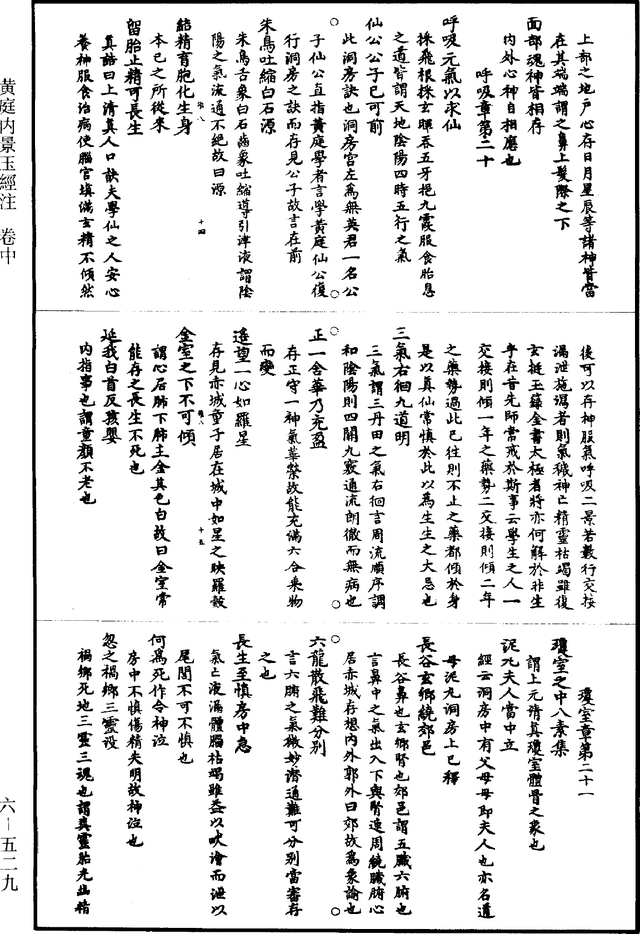 上部之地戶心存日月星辰等諸神皆當
在其端端謂之鼻上髮際之下
面部魂神皆相存
內外心神自相應也
呼吸章第二十
呼吸元氣以求仙
採飛根挾玄暉吞五牙挹九霞服食胎息
之道皆謂天地陰陽四時五行之氣
仙公公子已可前
此洞房訣也洞房宮左為無英君一名公
子仙公直指黃庭學者言學黃庭仙公復
行洞房之訣而存見公子故言在前
朱鳥吐縮白石源
朱鳥舌象白石齒象吐縮導引津液謂陰
陽之氣流通不絕故曰源
結精育胞化生身
本己之所從來
留胎止精可長生
真誥曰上清真人口訣夫學仙之人安心
養神服食治病使腦宮填滿玄精不傾然
後可以存神服氣呼吸二景若數行交接
漏泄施瀉者則氣穢神亡精靈枯竭雖復
玄挺玉籙金書太極者將亦何解於非生
乎在昔先師常戒於斯事云學生之人一
交接則傾一年之藥勢二交接則傾二年
之藥勢過此已往則不止之藥都傾於身
是以真仙常慎於此以為生生之大忌也
三氣右徊九道明
三氣謂三丹田之氣右徊言周流順序調
和陰陽則四關九竅通流朗徹而無病也
正一含華乃充盈
存正守一神氣華榮故能充滿六合乘物
而變
遙望一心如羅星
存見赤城童子居在城中如星之映羅縠
金室之下不可傾
謂心居肺下肺主金其色白故曰金室常
能存之長生不死也
延我白首反孩嬰
內指事也謂童顏不老也
瓊室章第二十一
瓊室之中八素集
謂上元清真瓊室體骨之象也
泥丸夫人當中立
經云洞房中有父母母即夫人也亦名道
母泥丸洞房上已釋
長谷玄鄉繞郊邑
長谷鼻也玄鄉腎也郊邑謂五臟六腑也
言鼻中之氣出入下與腎連周繞臟腑心
居赤城存想內外郭外曰郊故為象論也
六龍散飛難分別
言六腑之氣微妙潛通難可分別當審存
之也
長生至慎房中急
氣亡液漏髓腦枯竭雖益以吠澮而泄以
尾閭不可不慎也
何為死作令神泣
房中不慎傷精失明故神泣也
忽之禍鄉三靈歿
禍鄉死地三靈三魂也謂爽靈胎光幽精
黃庭內景玉經注 卷中
六—五二九